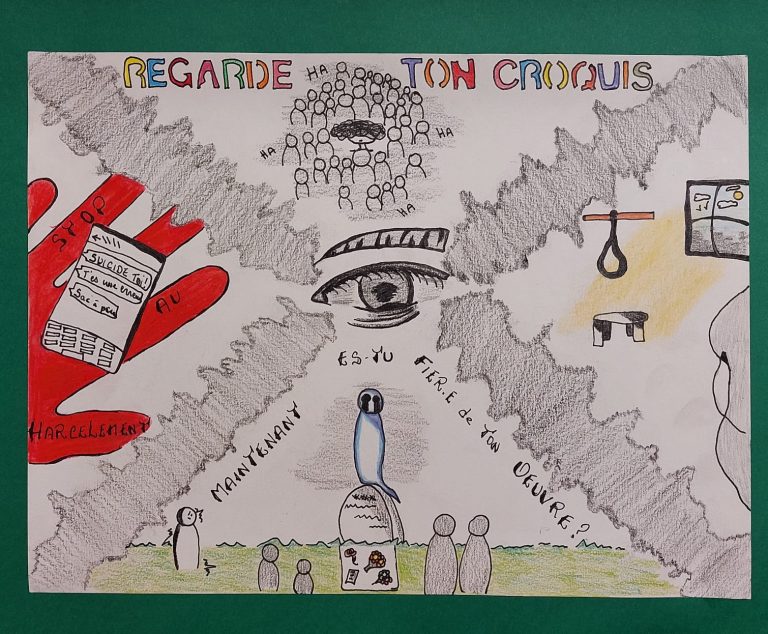 REGARDE TON CROQUIS
HA
HA
HA
HA
STOP
AU
HARCELEMENT
SUICIDE TOI!
T'es une erreur
Sac à
MAINTENANT
ES-TU
FIER.E de TON
OEUVRE?